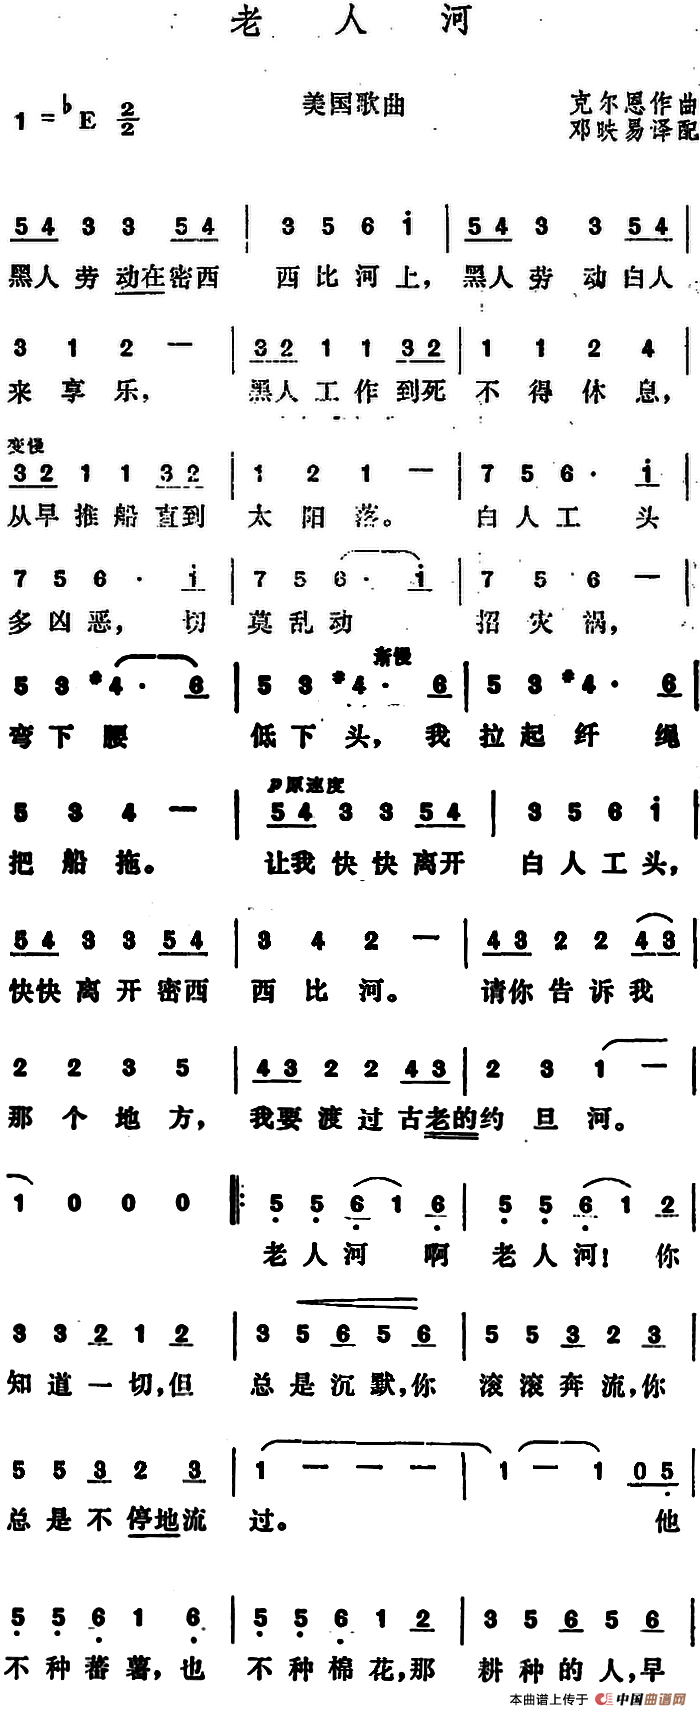 老人河
美国歌曲 克尔恩作曲
1=♭E 2/2 邓映易译配
5 4 3 3 5 4 | 3 5 6 i | 5 4 3 3 5 4 |
黑人劳动在密西 西比河上，黑人劳动白人
3 1 2 — | 3 2 1 1 3 2 | 1 1 2 4 |
来享乐，黑人工作到死 不得休息，
变慢
3 2 1 1 3 2 | 1 2 1 — | 7 5 6· i |
从早推船直到 太阳落。 白人工头
7 5 6· i | 7 5 6· i | 7 5 6 — |
多凶恶，切 莫乱动 招灾祸，
渐慢
5 3 #4· 6 | 5 3 #4· 6 | 5 3 #4· 6 |
弯下腰 低下头，我 拉起纤绳
p原速度
5 3 4 — | 5 4 3 3 5 4 | 3 5 6 i |
把船拖。 让我快快离开 白人工头，
5 4 3 3 5 4 | 3 4 2 — | 4 3 2 2 4 3 |
快快离开密西 西比河。 请你告诉我
2 2 3 5 | 4 3 2 2 4 3 | 2 3 1 — |
那个地方，我要渡过古老的约旦河。
1 0 0 0 ‖: 5 5 6 1 6 | 5 5 6 1 2 |
老人河 啊 老人河！你
3 3 2 1 2 | 3 5 6 5 6 | 5 5 3 2 3 |
知道一切，但 总是沉默，你 滚滚奔流，你
5 5 3 2 3 | 1 — — — | 1 — 1 0 5 |
总是不停地流 过。 他
5 5 6 1 6 | 5 5 6 1 2 | 3 5 6 5 6 |
不种蕃薯，也 不种棉花，那 耕种的人，早
本曲谱上传于 中国曲谱网